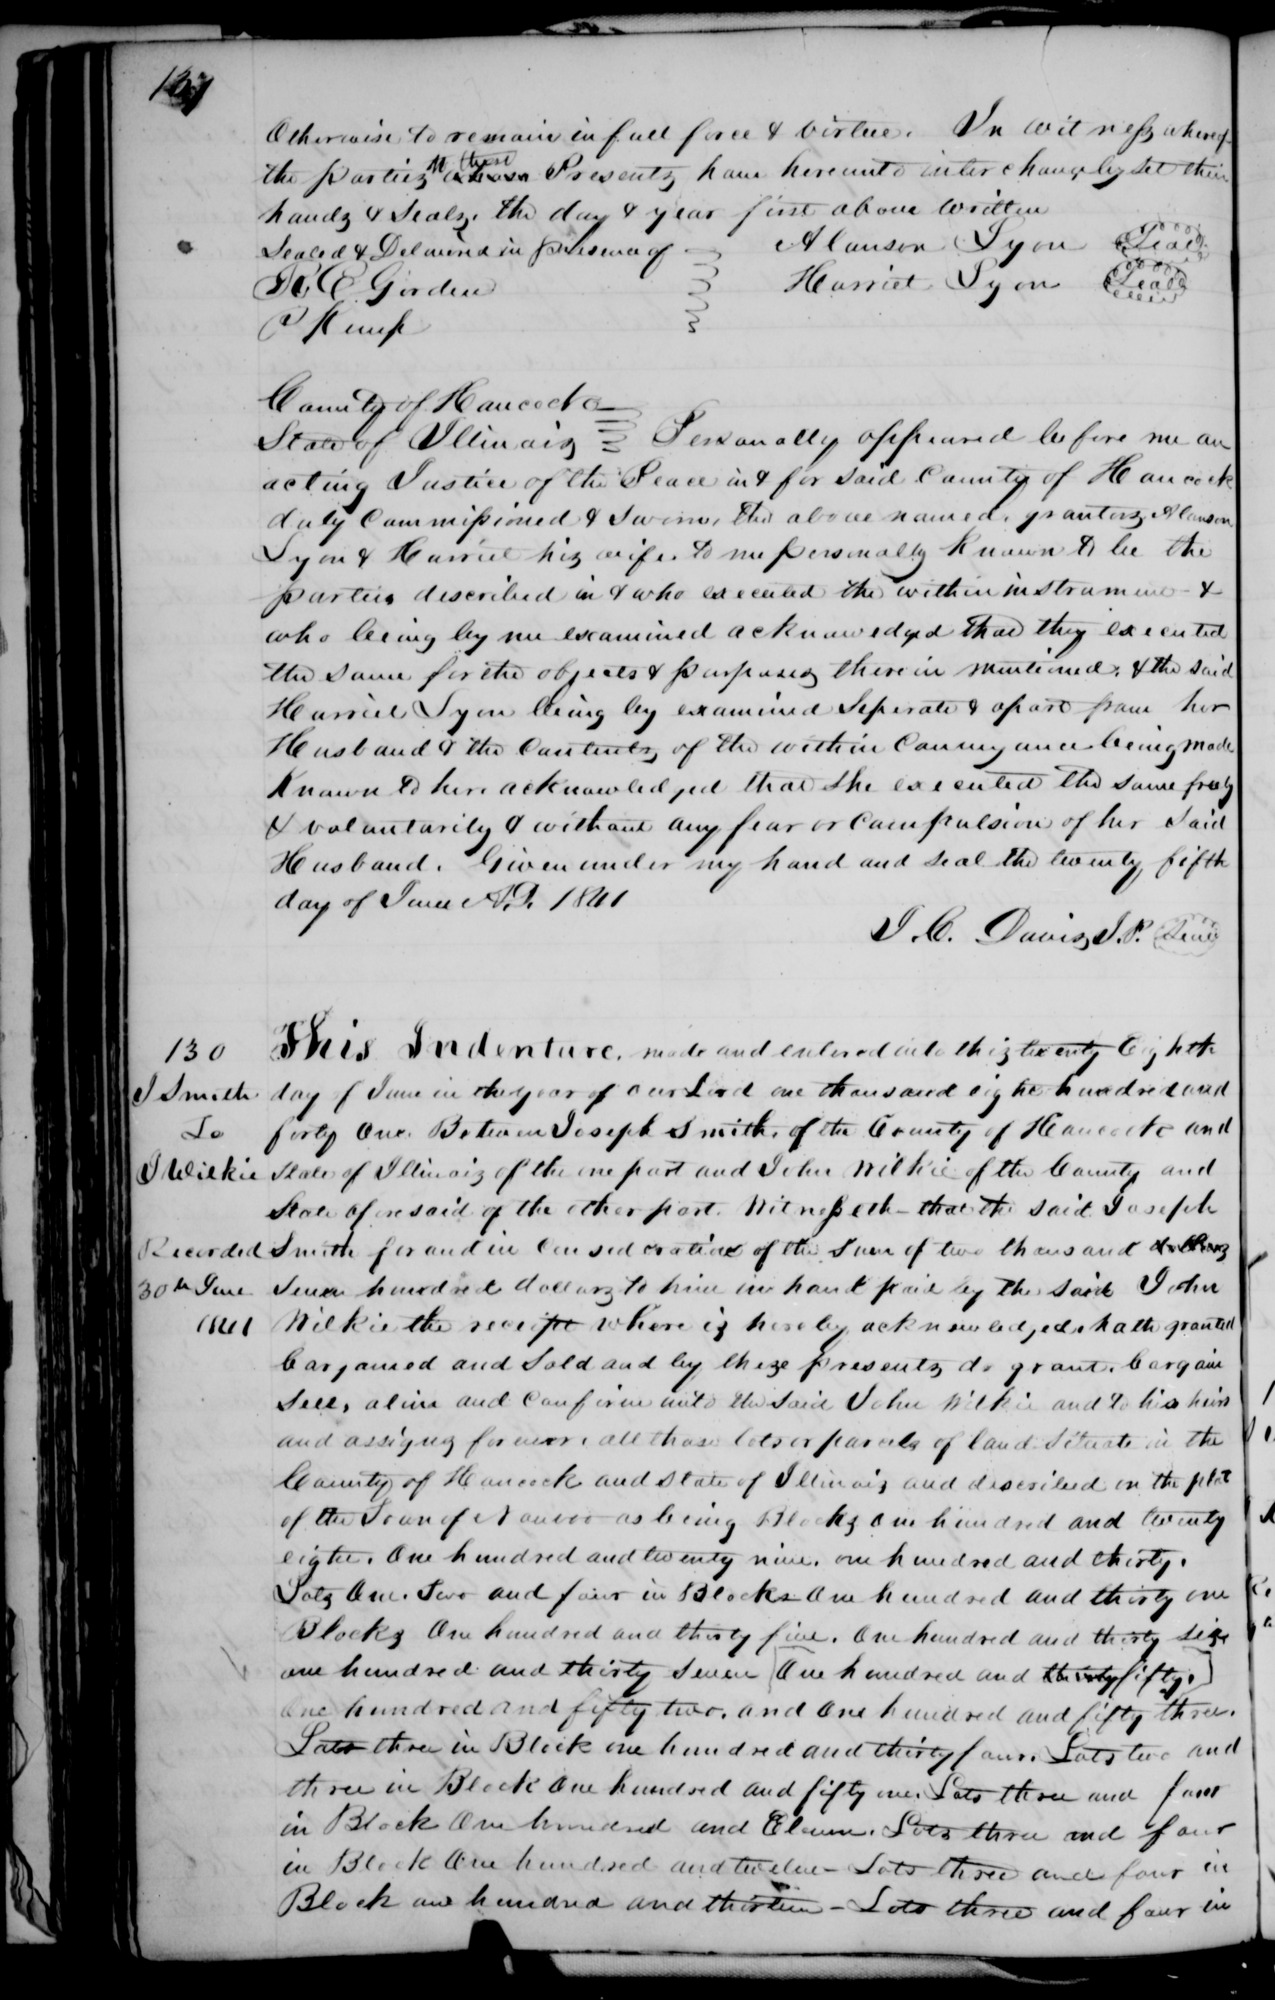 Otherwise to remain in full force & virtue. In witness whereof
the parties to these Presents have hereunto interchangebly set their
hands & seals, the day & year first above written
Sealed & Delivered in presence of Alanson Lyon Seal
R E Gorden Harriet Lyon Seal
P Kemp
County of Hancock
State of Illinois Personally appeared before me an
acting Justice of the Peace in & for said County of Hancock
duly Commissioned & Sworn, the above named, grantors, Alanson
Lyon & Harriet his wife, to me personally known to be the
parties described in & who executed the within instrument &
who being by me examined acknowedged that they executed
the same for the objects & purposes therein mentioned, & the said
Harriet Lyon being by examined Seperate & apart from her
Husband & the Contents of the within Conveyance being made
known to her, acknowledged that she executed the same freely
& voluntarily & without any fear or Compulsion of her said
Husband. Given under my hand and seal the twenty fifth
day of June A.D. 1841
J. C. Davis, J. P. Seal
130 This Indenture, made and entered into this twenty Eighth
J Smith day of June in the year of our Lord one thousand eight hundred and
To forty One. Between Joseph Smith, of the County of Hancock and
J Wilkie State of Illinois of the one part and John Wilkie of the County and
State aforesaid of the other part. Witnesseth that the said Joseph
Recorded Smith for and in Consideration of the Sum of two thousand dollars
30th June Seven hundred dollars to him in hand paid by the said John
1841 Wilkie the receipt where is hereby acknowledged, hath granted
bargained and Sold and by these presents do grant, bargain
Sell, alien and Confirm unto the said John Wilkie and to his heirs
and assigns forever, all those lots or parcels of land Situate in the
County of Hancock and State of Illinois and described on the plat
of the Town of Nauvoo as being Blocks One hundred and twenty
eight. One hundred and twenty nine. one hundred and thirty.
Lots One. Two and four in Blocks One hundred and thirty one
Blocks One hundred and thirty five. One hundred and thirty six
one hundred and thirty seven [One hundred and thirty fifty.]
One hundred and fifty two. and One hundred and fifty three.
Lots three in Block one hundred and thirty four. Lots two and
three in Block One hundred and fifty one. Lots three and four
in Block One hundred and Eleven. Lots three and four
in Block One hundred and twelve - Lots three and four in
Block one hundred and thirteen - Lots three and four in